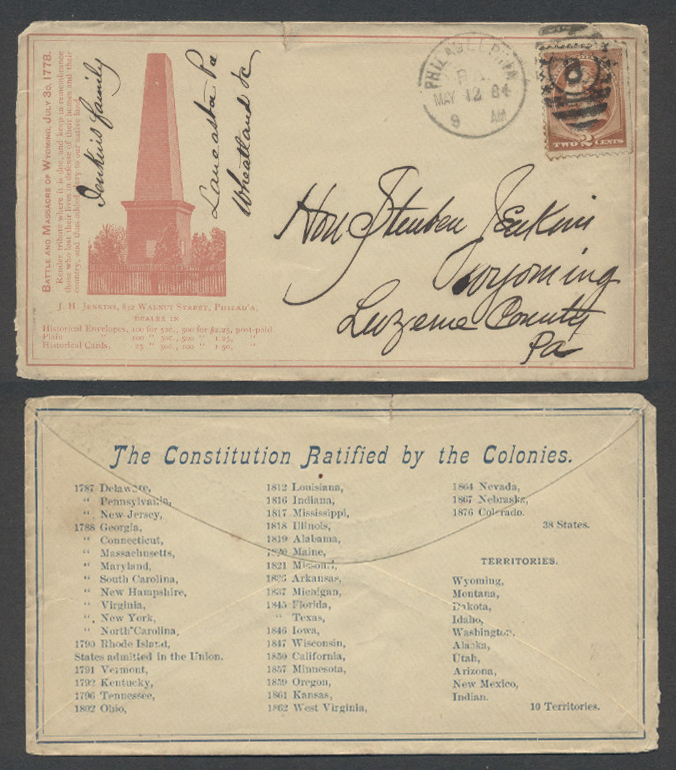 BATTLE AND MASSACRE OF WYOMING, JULY 3D, 1778.
Render tribute where it is due, and keep in remembrance
those who lost their lives in defense of their homes and their
country, and thus added glory to our native land.
Jenkins family
Lancaster Pa
Wheatland
J. H. JENKINS, 832 WALNUT STREET, PHILAD'A,
DEALER IN
Historical Envelopes, 100 for 50c., 500 for $2.25, post-paid.
Plain " 100 " 30c., 500 " 1.25, "
Historical Cards, 25 " 50c., 100 " 1.50, "
PHILADELPHIA
PA.
MAY 12 84
9 AM
TWO 2 CENTS
Hon Steuben Jenkins
Wyoming
Luzerne County
Pa
The Constitution Ratified by the Colonies.
1787 Delaware,
" Pennsylvania,
" New Jersey,
1788 Georgia,
" Connecticut,
" Massachusetts,
" Maryland,
" South Carolina,
" New Hampshire,
" Virginia,
" New York,
" North Carolina,
1790 Rhode Island,
States admitted in the Union.
1791 Vermont,
1792 Kentucky,
1796 Tennessee,
1802 Ohio,
1812 Louisiana,
1816 Indiana,
1817 Mississippi,
1818 Illinois,
1819 Alabama,
1820 Maine,
1821 Missouri,
1836 Arkansas,
1837 Michigan,
1845 Florida,
" Texas,
1846 Iowa,
1847 Wisconsin,
1850 California,
1857 Minnesota,
1859 Oregon,
1861 Kansas,
1862 West Virginia,
1864 Nevada,
1867 Nebraska,
1876 Colorado.
38 States.
TERRITORIES.
Wyoming,
Montana,
Dakota,
Idaho,
Washington,
Alaska,
Utah,
Arizona,
New Mexico,
Indian.
10 Territories.